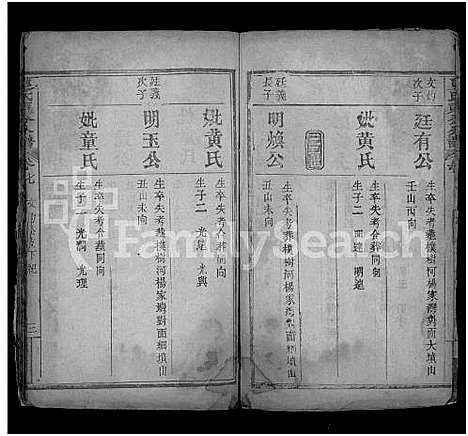 次子
廷有公
生卒失考葬樸樹河楊家灣對面大墳山
壬山丙向
妣黃氏
生卒失考合葬同向
生子二 明達
廷義
長子
明煥公
生卒失考葬樸樹河楊家灣對面
丑山未向
妣黃氏
生卒失考合葬同向
生子二 光 光興
廷義
次子
明玉公
生卒失考葬樸樹河楊家灣對面細墳山
丑山未向
妣童氏
生卒失考合葬同向
生子二 光潤 光理
卷七
三
FamilySearch